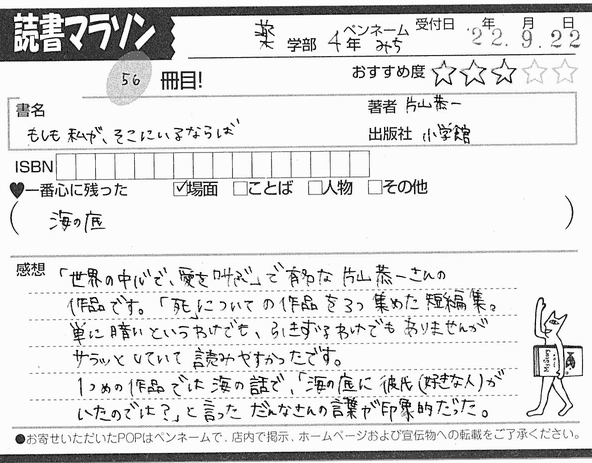 読書マラソン
薬学部 4年 ペンネーム みち 受付日 '22年9月22日
56冊目!
おすすめ度 ☆☆☆☆☆
書名 もしも私が、そこにいるならば
著者 片山恭一
出版社 小学館
ISBN
♥一番心に残った ☑場面 □ことば □人物 □その他
( 海の底 )
感想 「世界の中心で、愛を叫ぶ」で有名な片山恭一さんの
作品です。「死」についての作品を3つ集めた短編集。
単に暗いというわけでも、引きずるわけでもありませんが
サラッとしていて読みやすかったです。
1つめの作品では海の話で、「海の底に彼氏(好きな人)が
いたのでは?」と言っただんなさんの言葉が印象的だった。
●お寄せいただいたPOPはペンネームで、店内で掲示、ホームページおよび宣伝物への転載をご了承ください。